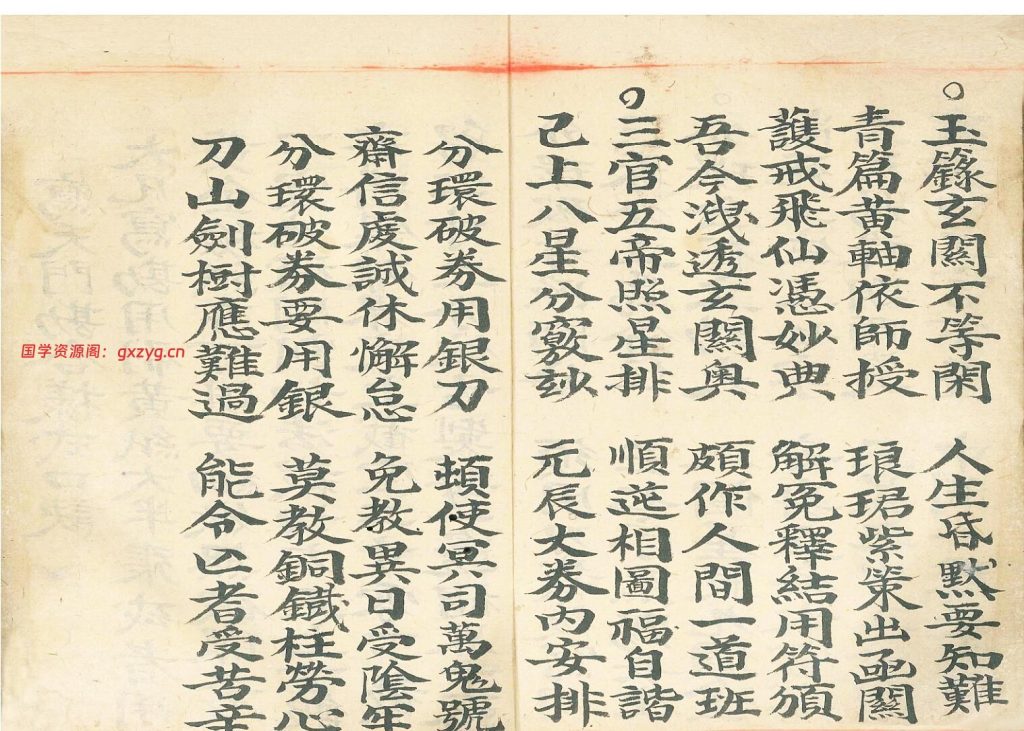 玉籙玄關不等閑 人生昏黙要知難
青篇黃軸依師授 琅珺紫策出函關
護戒飛仙憑妙典 解冤釋結用符頒
吾今洩透玄關奥 頗作人間一道班
三官五帝照星排 順逆相圖福自諧
己上八星分竅妙 元辰大券内安排
分環破券用銀刀 頓使冥司萬鬼號
齋信虔誠休懈怠 免教異日受陰牢
分環破券要用銀 莫教銅鐵柱勞心
刀山劍樹應難過 能令亡者受苦辛
国学资源阁：gxzyg.cn